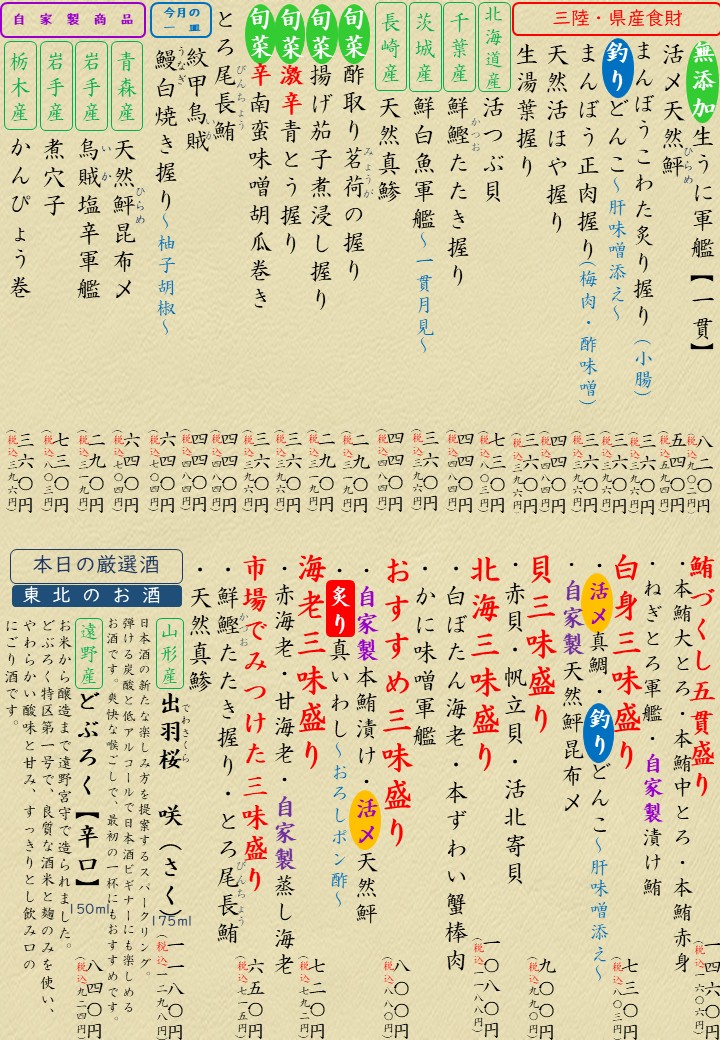 三陸・県産食財
無添加生うに軍艦【一貫】 八二〇円(税込九〇二円)
活〆天然鮃 ひらめ 五四〇円(税込五九四円)
まんぼうこわた炙り握り(小腸) 三六〇円(税込三九六円)
釣りどんこ～肝味噌添え～ 三六〇円(税込三九六円)
まんぼう正肉握り(梅肉・酢味噌) 三六〇円(税込三九六円)
天然活ほや握り 四四〇円(税込四八四円)
生湯葉握り 三六〇円(税込三九六円)
北海道産 活つぶ貝 七三〇円(税込八〇三円)
千葉産 鮮鰹たたき握り かつお 四四〇円(税込四八四円)
茨城産 鮮白魚軍艦～一貫月見～ 三六〇円(税込三九六円)
長崎産 天然真鯵 四四〇円(税込四八四円)
旬菜 酢取り茗荷の握り みょうが 二九〇円(税込三一九円)
旬菜 揚げ茄子煮浸し握り 二九〇円(税込三一九円)
旬菜 激辛青とう握り 三六〇円(税込三九六円)
旬菜 辛南蛮味噌胡瓜巻き 三六〇円(税込三九六円)
とろ尾長鮪 びんちょう 四四〇円(税込四八四円)
今月の一皿
紋甲烏賊 いか 四四〇円(税込四八四円)
鰻白焼き握り～柚子胡椒～ うなぎ 六四〇円(税込七〇四円)
自家製商品
青森産 天然鮃昆布〆 ひらめ 六四〇円(税込七〇四円)
岩手産 烏賊塩辛軍艦 いか 二九〇円(税込三一九円)
岩手産 煮穴子 七三〇円(税込八〇三円)
栃木産 かんぴょう巻 三六〇円(税込三九六円)
鮪づくし五貫盛り
・本鮪大とろ・本鮪中とろ・本鮪赤身 一四六〇円(税込一六〇六円)
・ねぎとろ軍艦・自家製漬け鮪
白身三味盛り
・活〆真鯛・釣りどんこ～肝味噌添え～ 七三〇円(税込八〇三円)
・自家製天然鮃昆布〆
貝三味盛り
・赤貝・帆立貝・活北寄貝 九〇〇円(税込九九〇円)
北海三味盛り
・白ぼたん海老・本ずわい蟹棒肉 一〇八〇円(税込一一八八円)
・かに味噌軍艦
おすすめ三味盛り
・自家製本鮪漬け・活〆天然鮃 八〇〇円(税込八八〇円)
・炙り真いわし～おろしポン酢～
海老三味盛り
・赤海老・甘海老・自家製蒸し海老 七二〇円(税込七九二円)
市場でみつけた三味盛り
・鮮鰹たたき握り・とろ尾長鮪 かつお びんちょう 六五〇円(税込七一五円)
・天然真鯵
本日の厳選酒
東北のお酒
山形産 出羽桜 咲(さく) でわさくら 175ml 一一八〇円(税込一二九八円)
日本酒の新たな楽しみ方を提案するスパークリング。
弾ける炭酸と低アルコールで日本酒ビギナーにも楽しめる
お酒です。爽快な喉ごしで、最初の一杯にもおすすめです。
遠野産 どぶろく【辛口】 150ml 八四〇円(税込九二四円)
お米から醸造まで遠野宮守で造られました。
どぶろく特区第一号で、良質な酒米と麹のみを使い、
やわらかい酸味と甘み、すっきりとし飲み口の
にごり酒です。